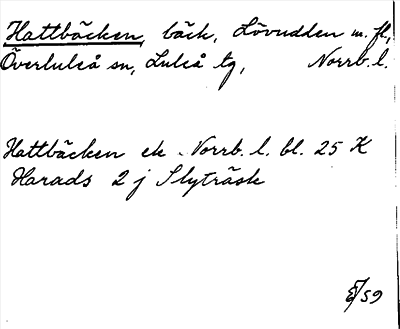 Hattbäcken, bäck, Lövudden m. fl,
Överluleå sn, Luleå tg, Norrb. l.
Hattbäcken ek. Norrb. l. bl. 25 K
Harads 2 j Slyträsk
E/59